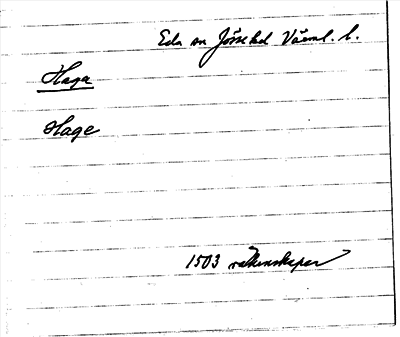 Eda sn Jösse hd Värml. l.
Haga
Hage
1503 räkenskaper